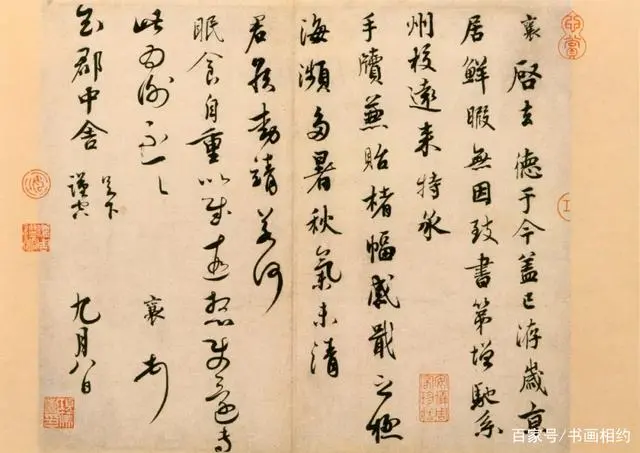 襄啓去德于今蓋已洊歲京
居鮮暇無因致書第增馳系
州校遠来特承
手牘兼貽楮幅感戢之極
海瀕多暑秋氣未清
君侯動靖若何
眠食自重以慰遠想使還專
此為謝不一一 襄頓首
知郡中舍足下
謹空 九月八日
百家号/书画相约